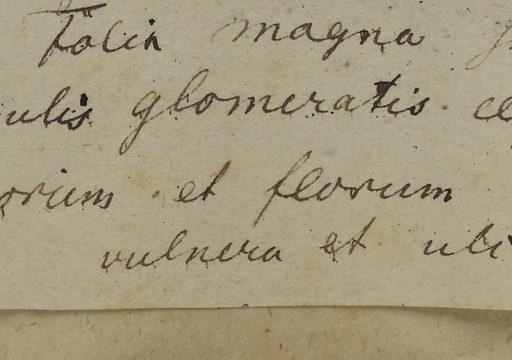 folia magna
ulis glomeratis
orum et florum
vulnera et ulc